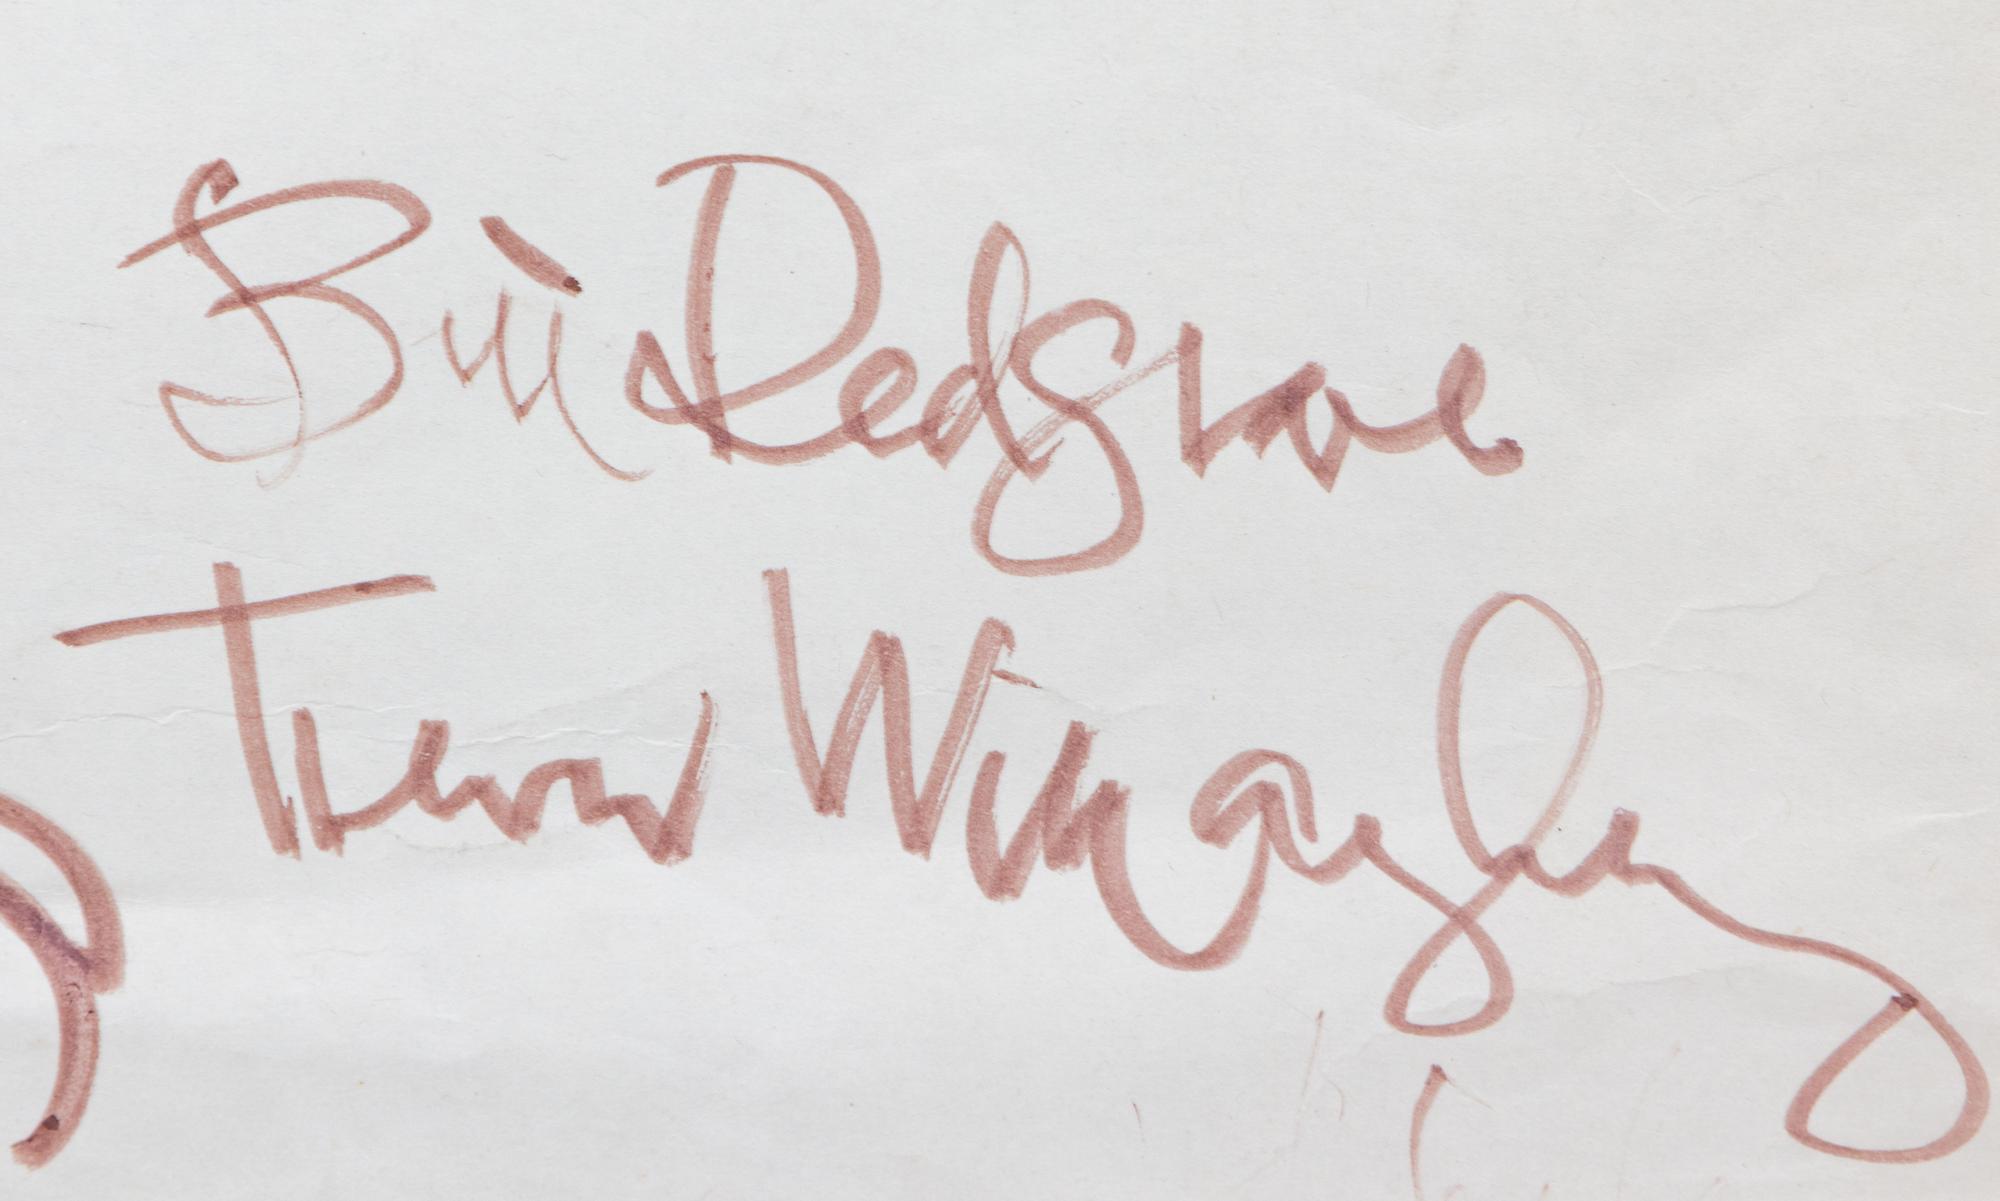 Bill Redgrave
Trevor Willoughby